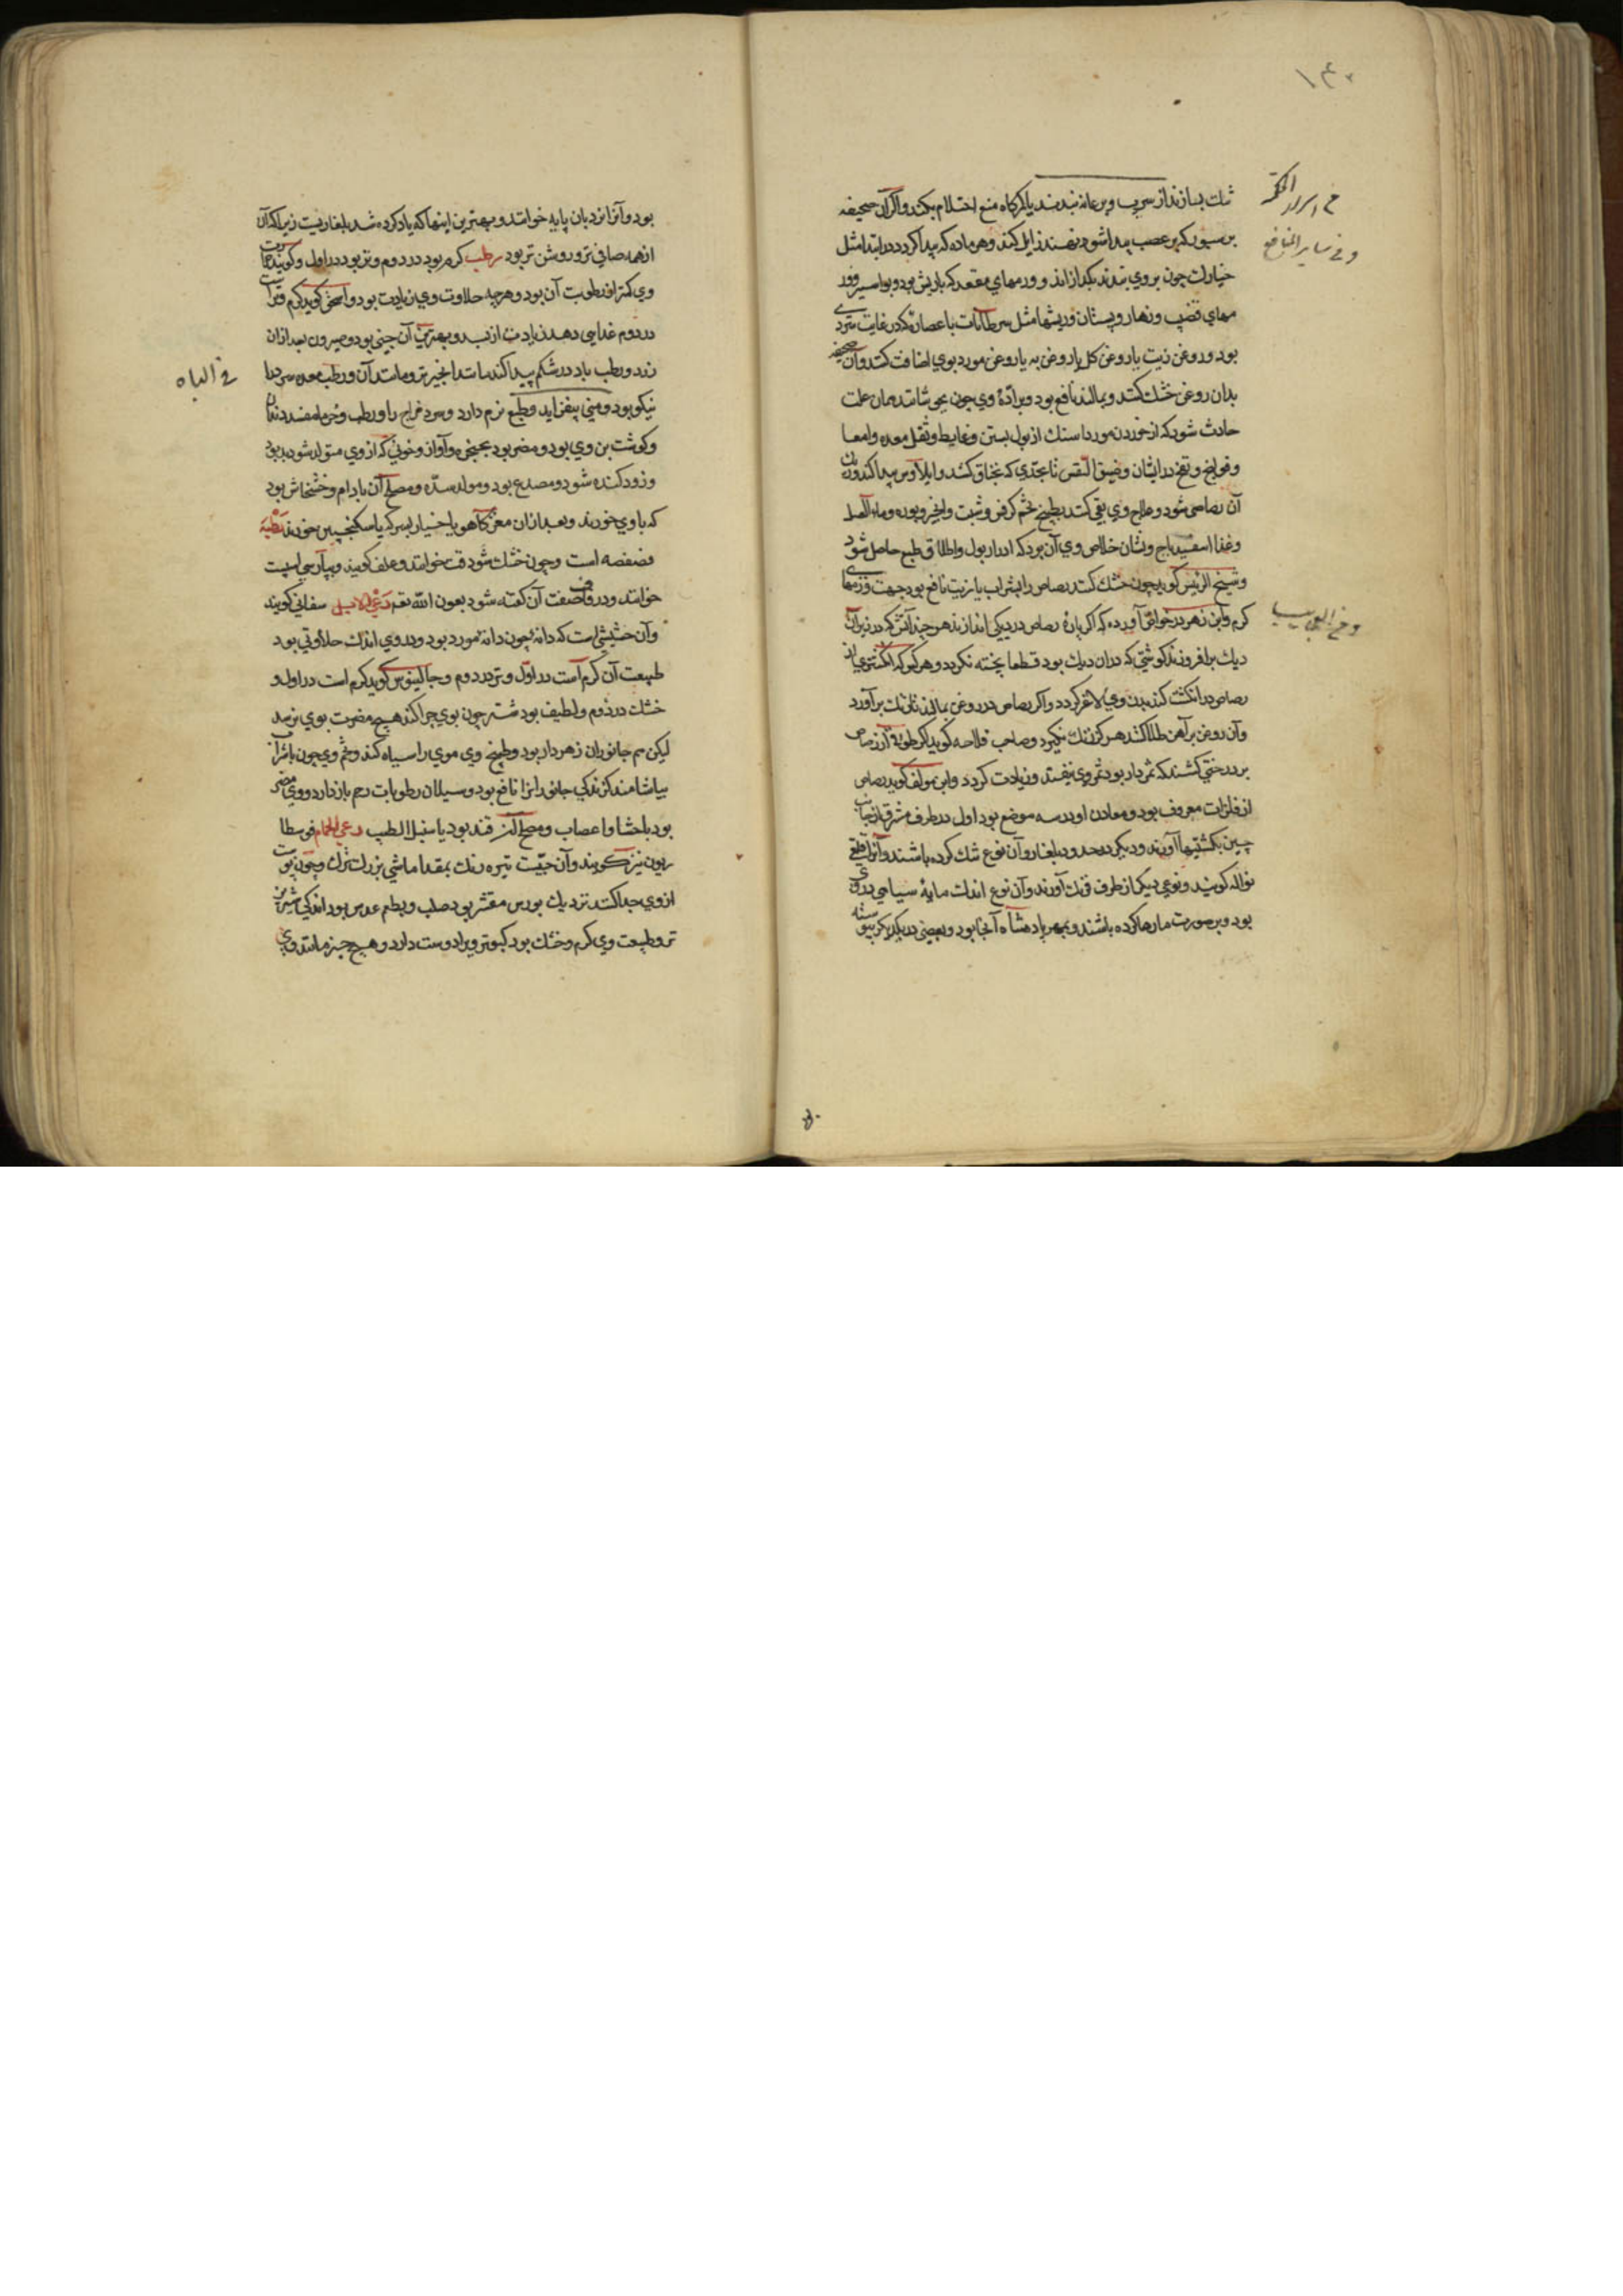 ۱۴۰
ثلث بسازند از سرب و بر عانه بندند یا کمرگاه منع احتلام بکند و اگر آن صحیفه
بر سبوری که بر عصب پیدا شود نهند زایل کند و هر ماده که پیدا گردد در ابتدا مثل
خیارک چون بر وی بندند بگدازاند و ورمهای مقعد که با ریش بود و بواسیر و ور
مهای قضیب و زهار و پستان و ریشها مثل سرطانات با عصارۀ که در غایت سردی
بود و روغن زیت یا روغن گل یا روغن به یا روغن مورد بوی اضافت کنند و آن صحیفه
بدان روغن خشک کنند و بمالند نافع بود و برادۀ وی چون بیاشامند همان علت
حادث شود که از خوردن مورداسنک از بول بستن و غایط و ثقل معده و امعا
و قولنج و نفخ در ایشان و ضیق النفس تا بحدی که بخناق کشد و ایلاوس پیدا کند و زبان
آن رصاصی شود و علاج وی بقی کنند بطبیخ تخم کرفس و شبت و انجیر و بوره و ماء العسل
و غذا اسفیدباج و نشان خلاص وی آن بود که ادرار بول و اطلاق طبع حاصل شود
و شیخ الرئیس گوید چون خشک کنند رصاص را بشراب یا زیت نافع بود جهت ورمهای
گرم و ابن زهر در خواص آورده که اگر پارۀ رصاص در دیگی اندازند هر چند آتش که در زیر آن
دیک برافروزند گوشتی که در آن دیک بود قطعا پخته نگردد و هر کو که انگشتری از
رصاص در انگشت کند بدن وی لاغر گردد و اگر رصاص در روغن بمالند تا زنک برآورد
و آن روغن بر آهن طلا کنند هرگز زنک نگیرد و صاحب فلاحه گوید اگر طوقی از رصاص
بر درختی کشند که ثمردار بود ثمر وی نیفتد و زیادت گردد و ابن مولف گوید رصاص
از فلزات معروف بود و معادن او در سه موضع بود اول در طرف مشرق از جانب
چین بکشتیها آورند و دیگر در حدود بلغار و آن نوع تنک کرده باشند و آنرا قلعی
نواله گویند و نوعی دیگر از طرف فرنک آورند و آن نوع اندک مایۀ سیاهی در وی
بود و بر صورت مارها کرده باشند و بمهر پادشاه آنجا بود و بعضی در یکدیگر پیوسته
وفی سایر المنافع
بود و آنرا نردبان پایه خوانند و بهترین اینها که یاد کرده شد بلغاریست زیرا که آن
از همه صافی تر و روشن تر بود رطب گرم بود در دوم و تر بود در اول و گویند حرارت
وی کمتر از رطوبت آن بود و هرچه حلاوت وی زیادت بود و اسحق گوید گرم و تر است
در دوم غذایی دهد زیادت از بسر و بهترین آن جنی بود و هیرون بعد از آن
زرد و رطب باد در شکم پیدا کند مانند انجیر تر و مانند آن و رطب معده سرد را
نیکو بود و منی بیفزاید و طبع نرم دارد و سرد مزاج را و رطب و خرما مفسد دندان
و گوشت بن وی بود و مضر بود بحنجره و آواز و خونی که از وی متولد شود بد بود
و زود گنده شود و مصدع بود و مولد سده و مصلح آن بادام و خشخاش بود
که با وی خورند و بعد از آن مغز کاهو یا خیار بسرکه یا سکنجبین خورند رطبه
فصفصه است و چون خشک شود قت خوانند و علف گویند و بپارسی اسپست
خوانند و در قاف صفت آن گفته شود بعون الله تعالی رعی الابل سفانی گویند
و آن حشیشی است که دانۀ چون دانۀ مورد بود و در وی اندک حلاوتی بود
طبیعت آن گرم است در اول و تر در دوم و جالینوس گوید گرم است در اول و
خشک در دوم و لطیف بود شتر چون بوی چرا کند هیچ مضرت بوی نرسد
لیکن سم جانوران زهردار بود و طبیخ وی موی را سیاه کند و تخم وی چون با شراب
بیاشامند گزندگی جانوران را نافع بود و سیلان رطوبات رحم بازدارد و وی مضر
بود باحشا و اعصاب و مصلح آن قند بود یا سنبل الطیب رعی الحمام فوسطا
ریون نیز گویند و آن حبیست تیره رنک بمقدار ماشی بزرگ ترک و چون پوست
از وی جدا کنند نزدیک بورس مقشر بود صلب و بطعم عدس بود اندکی شیرین
تر و طبیعت وی گرم و خشک بود کبوتر ویرا دوست دارد و هیچ چیز مانند وی
فی الباه